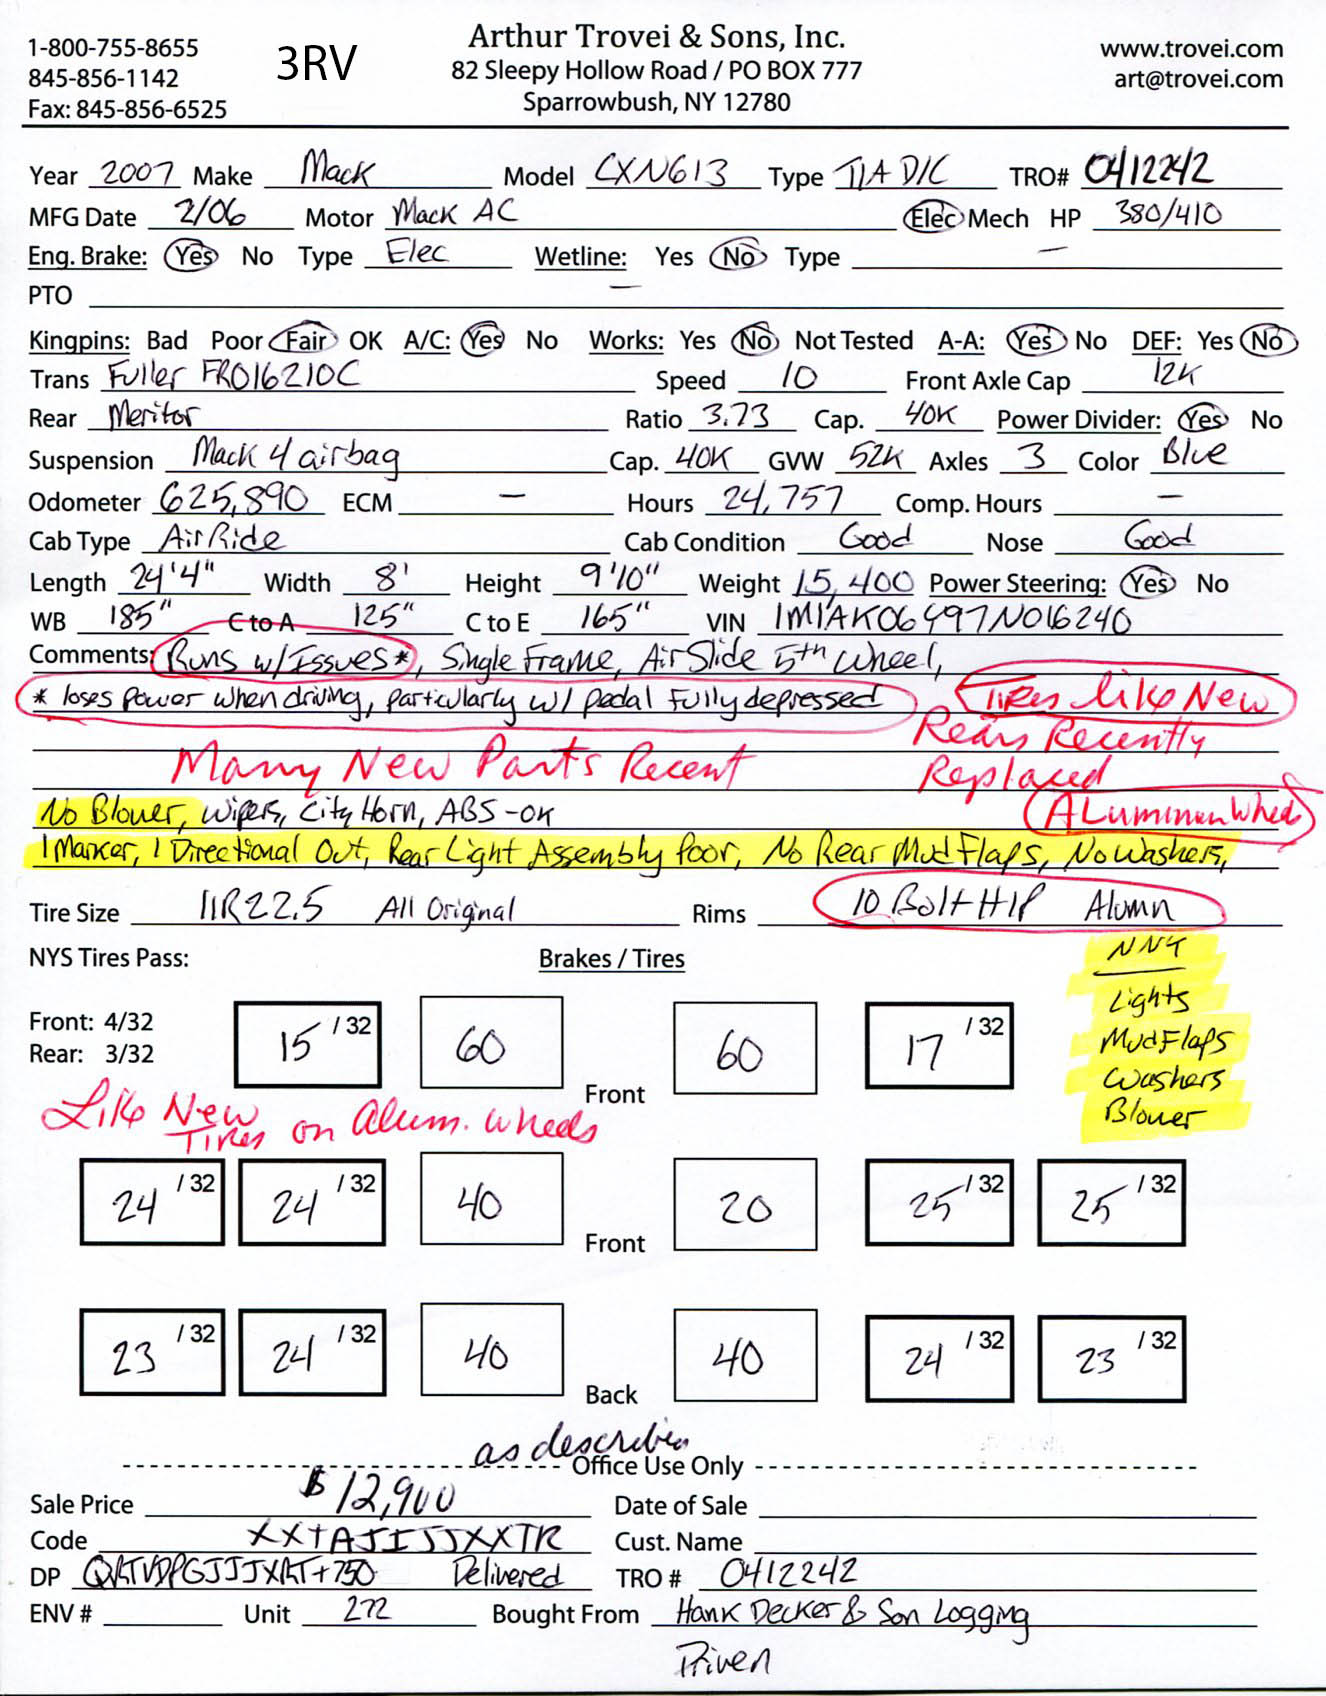 1-800-755-8655
845-856-1142
Fax: 845-856-6525
3RV
Arthur Trovei & Sons, Inc.
82 Sleepy Hollow Road / PO BOX 777
Sparrowbush, NY 12780
www.trovei.com
art@trovei.com
Year 2007 Make Mack Model CXN613 Type T/A D/C TRO# 0412242
MFG Date 2/06 Motor Mack AC Elec Mech HP 380/410
Eng. Brake: Yes No Type Elec Wetline: Yes No Type —
PTO —
Kingpins: Bad Poor Fair OK A/C: Yes No Works: Yes No Not Tested A-A: Yes No DEF: Yes No
Trans Fuller FRO16210C Speed 10 Front Axle Cap 12K
Rear Meritor Ratio 3.73 Cap. 40K Power Divider: Yes No
Suspension Mack 4 airbag Cap. 40K GVW 52K Axles 3 Color Blue
Odometer 625,890 ECM — Hours 24,757 Comp. Hours —
Cab Type Air Ride Cab Condition Good Nose Good
Length 24'4" Width 8' Height 9'10" Weight 15,400 Power Steering: Yes No
WB 185" C to A 125" C to E 165" VIN 1M1AK06Y97N016240
Comments: Runs w/Issues*, Single Frame, Air Slide 5th Wheel,
* loses power when driving, particularly w/ pedal fully depressed Tires Like New
Rears Recently
Many New Parts Recent Replaced
No Blower, Wipers, City Horn, ABS-OK Aluminum Wheels
1 Marker, 1 Directional Out, Rear Light Assembly Poor, No Rear Mud Flaps, No Washers,
Tire Size 11R22.5 All Original Rims 10 Bolt H/P Alumn
NYS Tires Pass: Brakes / Tires NNY
Lights
Mud Flaps
Washers
Blower
Front: 4/32
Rear: 3/32
15 /32 60 Front 60 17 /32
Like New Tires on Alum. Wheels
24 /32 24 /32 40 Front 20 25 /32 25 /32
23 /32 24 /32 40 Back 40 24 /32 23 /32
as described
Office Use Only
Sale Price $12,900 Date of Sale
Code XXTAJIJJXXTR Cust. Name
DP +750 Delivered TRO # 0412242
ENV # Unit 272 Bought From Hank Decker & Son Logging
Driven